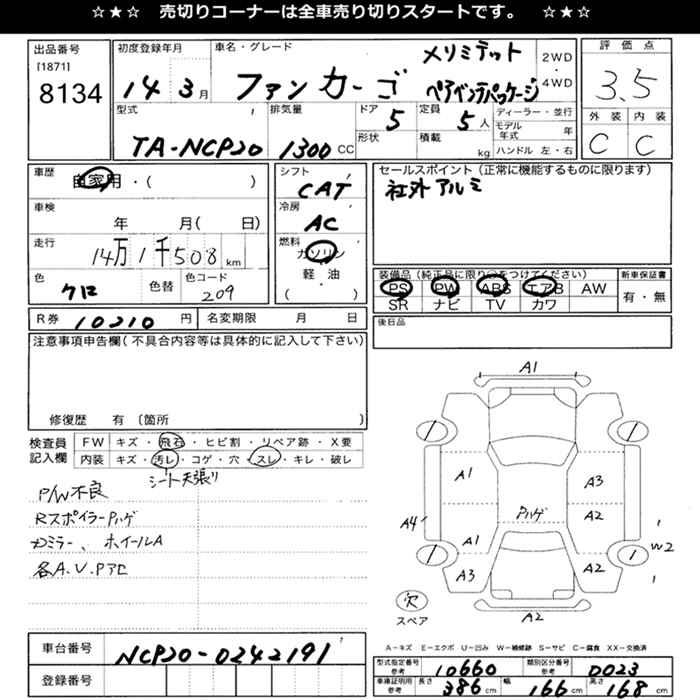 ☆★☆ 売切りコーナーは全車売り切りスタートです。 ☆★☆
出品番号
[1871]
8134
初度登録年月
14 3月
車名・グレード
ファンカーゴ
メリミテット
ペアベンチパッケージ
2WD
・
4WD
評価点
3.5
外装 内装
C C
型式
TA-NCP20
排気量
1300 CC
ドア 5
形状
定員 5人
積載 kg
ディーラー・並行
モデル年式 年
ハンドル 左・右
車歴
自家用・( )
車検
年 月( 日)
走行
14万1千508 km
色
クロ
色替
色コード
209
シフト
CAT
冷房
AC
燃料
ガソリン
軽・油
( )
セールスポイント(正常に機能するものに限ります)
社外アルミ
装備品(純正品に限り○をつけてください)
PS PW ABS エアB AW
SR ナビ TV カワ
新車保証書
有・無
R券 10210 円
名変期限 月 日
後日品
注意事項申告欄(不具合内容等は具体的に記入して下さい)
修復歴 有 〔箇所 〕
検査員
記入欄
FW キズ・飛石・ヒビ割・リペア跡・X要
内装 キズ・汚レ・コゲ・穴・スレ・キレ・破レ
シート天張り
P/W不良
RスポイラーPハゲ
カミラー、ホイールA
各A.U.Pアセ
A1
A1
A3
A4
PハゲA2
A1
W2
A3
A2
A2
穴
スペア
A-キズ E-エクボ U-凹み W-補修跡 S-サビ C-腐食 XX-交換済
車台番号
NCP20-0242191
登録番号
型式指定番号
参考
10660
類別区分番号
参考
D023
車庫証明用
参考
長さ 386 cm
幅 166 cm
高さ 168 cm